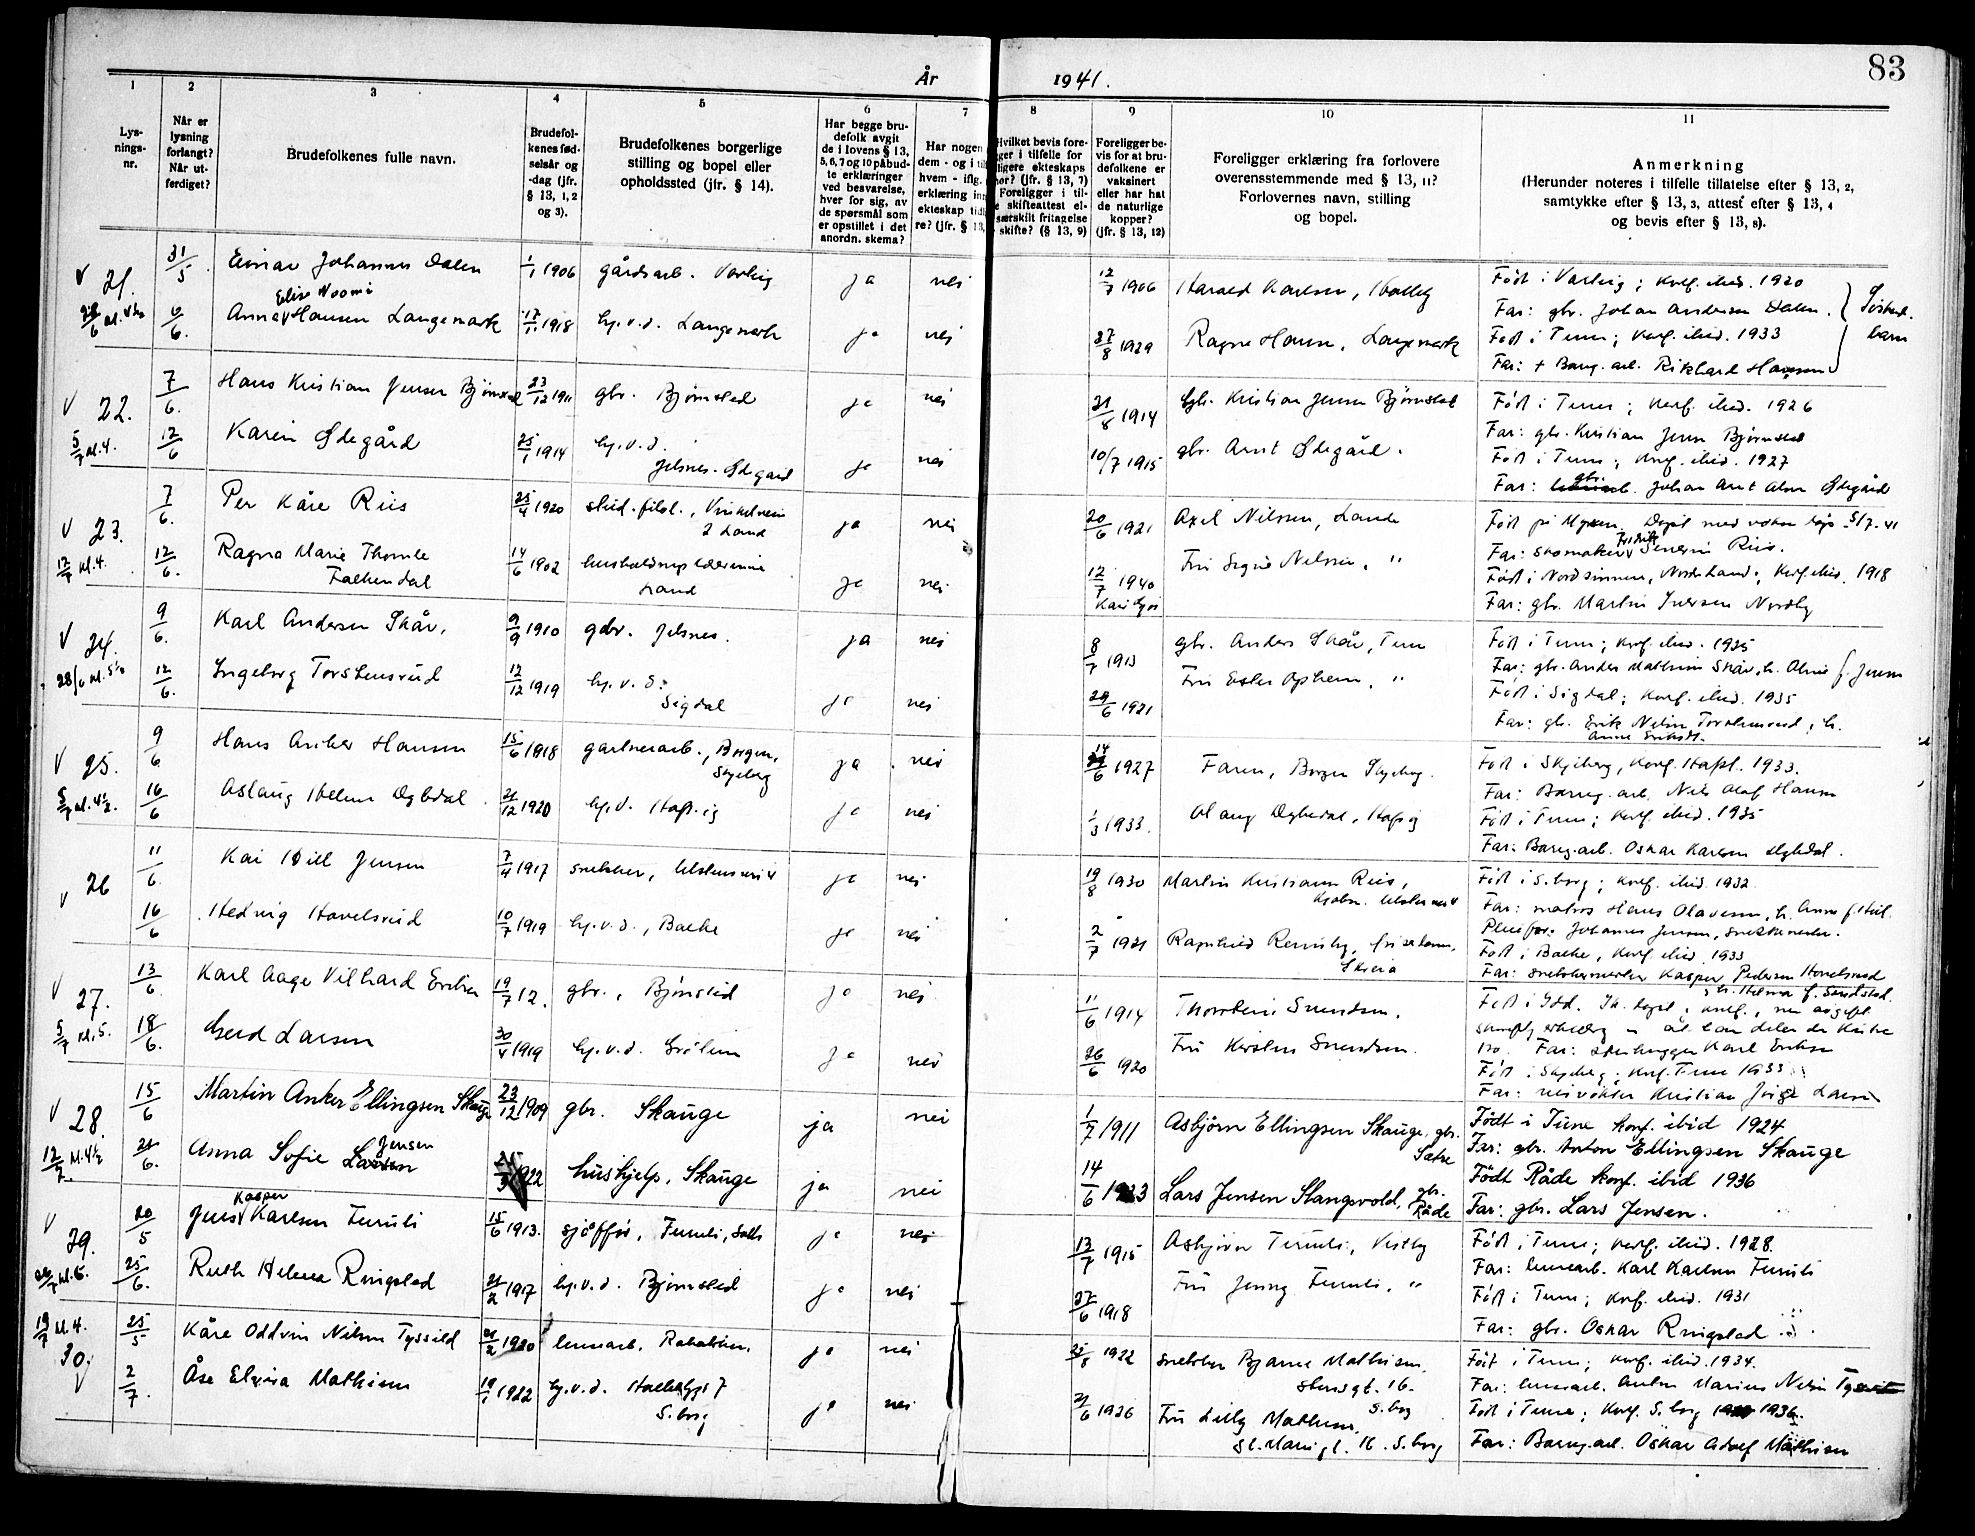 83
År 1941.
1 2 3 4 5 6 7 8 9 10 11
Lys-
nings-
nr.
Når er
lysning
forlangt?
Når ut-
ferdiget?
Brudefolkenes fulle navn.
Brudefol-
kenes fød-
selsår og
-dag (jfr.
§ 13, 1, 2
og 3).
Brudefolkenes borgerlige
stilling og bopel eller
opholdssted (jfr. § 14).
Har begge bru-
defolk avgit
de i lovens § 13,
5, 6, 7 og 10 påbud-
te erklæringer
ved besvarelse,
hver for sig, av
de spørsmål som
er opstillet i det
anordn. skema?
Har nogen
dem - og i til
hvem - iflg.
erklæring inn
ekteskap tidl
re? (jfr. § 13,
Hvilket bevis fore-
ger i tilfelle for
ligere ekteskaps
hør? (jfr. § 13, 7)
Foreligger i til-
e skifteattest el-
særskilt fritagelse
skifte? (§ 13, 9)
Foreligger be-
vis for at bru-
defolkene er
vaksinert
eller har hat
de naturlige
kopper?
(jfr. § 13, 12)
Foreligger erklæring fra forlovere
overensstemmende med § 13, 11?
Forlovernes navn, stilling
og bopel.
Anmerkning
(Herunder noteres i tilfelle tillatelse efter § 13, 2,
samtykke efter § 13, 3, attest efter § 13, 4
og bevis efter § 13, 8).
V 21. 31/5 Einar Johannes Dalen 1/1 1906 gårdsarb. Varteig ja nei 12/7 1906 Harald Karlsen, Født i Varteig; konf. ibid. 1920
Far: gbr. Johan Andersen Dalen. Søskenbarn
6/6. Anna Elise Noomi Hansen Langemark 17/1 1918 hj.v.d. Langemark ja nei 27/8 1929 Ragna Hansen, Langemark Født i Tune; konf. ibid. 1933
Far: + Borg. arb. Rikhard Hansen
V 22. 7/6. Hans Kristian Jensen Bjørnstad 23/12 1911 gbr. Bjørnstad ja nei 21/8 1914 Gbr. Kristian Jensen Bjørnstad Født i Tune; konf. ibid. 1926
Far: gbr. Kristian Jensen Bjørnstad
5/7 kl. 4. 12/6 Karin Ødegård 25/1 1914 hj.v.d. Jelsnes-Ødegård ja nei 10/7 1915 gbr. Arnt Ødegård. Født i Tune; konf. ibid. 1927
Far: gbr. Johan Arnt Ødegård
V 23. 7/6. Per Kåre Riis 25/4 1920 stud. filol., ja nei 20/6 1921 Axel Nilsen, Lande Født på Mysen.
Far: skomaker Fredrik Severin Riis.
12/7 kl. 4. 12/6. Ragna Marie Thomle Falkendal 14/6 1902 husholdningslærerinne Land ja nei 12/7 1940 Fru Signe Nilsen, " Født i Nordsinnen, Nordre Land; konf. ibid. 1918
Far: gbr. Martin Iversen Nordby
V 24. 9/6. Karl Andersen Skår, 9/9 1910 gbr. Jelsnes. ja nei 8/7 1913 gbr. Anders Skår, Tune Født i Tune; konf. ibid. 1925
Far: gbr. Anders Mathisen Skår, h. f. Jensen
28/6 kl. 5½ 12/6. Ingeborg Torstensrud 12/12 1919 hj.v.d. Sigdal ja nei 29/6 1921 Fru Ester Opheim, " Født i Sigdal; konf. ibid. 1935
Far: gb. Erik Nilsen Torstensrud, h.
Anne Eriksdt.
V 25. 9/6 Hans Anker Hansen 15/6 1918 gartnerarb., Borgen, Skjeberg ja nei 14/6 1927 Faren, Borgen Skjeberg. Født i Skjeberg, konf. Hafsl. 1933.
Far: Borreg. arb. Nils Olaf Hansen
5/7 kl. 4½. 16/6 Aslaug Helene Dybdal 21/12 1920 hj.v. ja nei 1/3 1933. Dybedal, Født i Tune; konf. ibid. 1935
Far: Borreg. arb. Oskar Karlsen Dybdal.
V 26 11/6. Kai Hill Jensen 7/4 1917 snekker, ja nei 19/8 1930 Martin Kristiansen Riis, Født i S.borg; konf. ibid. 1932
Far: matros Hans Olavesen, h. Anna f. Hill.
Pleiefar: Johannes Jensen, snekkermester.
16/6 Hedvig Hovelsrud 10/7 1919 hj.v.d., Balke ja nei 2/7 1921 Ragnhild Skreia Født i Balke, konf. ibid. 1933
Far: snekkermester Kasper Pedersen Hovelsrud
h. Helma f. Sandstad.
V 27. 13/6. Karl Aage Vilhard Eriksen 19/7 12. gbr., Bjørnstad ja nei 11/6 1914 Thorstein Svendsen. Født i Idd.
Far: stenhugger Karl Eriksen
5/7 kl. 5. 18/6. Gerd Larsen 30/4 1919 hj.v.d. Grålum ja nei 26/6 1920 Fru Kirsten Svendsen. Født i Skjeberg; konf. Tune 1933
Far: Kristian Larsen
V 28. 15/6 Martin Anker Ellingsen Skauge 23/12 1909 gbr. Skauge ja nei 1/7 1911 Asbjörn Ellingsen Skauge, gbr. Sætre Födt i Tune konf. ibid 1924
Far: gbr. Anton Ellingsen Skauge
12/7 kl. 4½ 21/6. Anna Sofie Jensen 1922 hushjelp, Skauge ja nei 14/6 1923 Lars Jensen Slangsvold, gbr. Råde Födt Råde konf. ibid 1936
Far: gbr. Lars Jensen.
V 29. 20/5 Jens Kasper Karlsen Furuli 15/6 1913. sjåffør, Furuli, ja nei 13/7 1915 Asbjørn Furuli, Vestby Født i Tune; konf. ibid. 1928.
Far: lensearb. Karl Karlsen Furuli
kl. 5. 25/6. Ruth Helena Ringstad 21/2 1917 hj.v.d. Bjørnstad ja nei 27/6 1918 Fru Jenny Furuli, " Født i Tune; konf. ibid. 1931
Far: gbr. Oskar Ringstad
19/7 kl. 4. 30 25/5 Kåre Oddvin Nilsen Tyssild 21/2 1920 lensearb. ja nei 25/8 1922 snekker Bjarne Mathisen, 16. S.borg Født i Tune; konf. ibid. 1934.
Far: lensearb. Anton Marius Nilsen
2/7. Åse Elvira Mathisen 19/1 1922 hj.v.d. 7 S.borg ja nei 21/6 1926 Fru Lilly Mathisen, St. Mariegt. 16. S.borg Født i Tune; konf. S.borg 1936.
Far: Borreg. arb. Oskar Adolf Mathisen